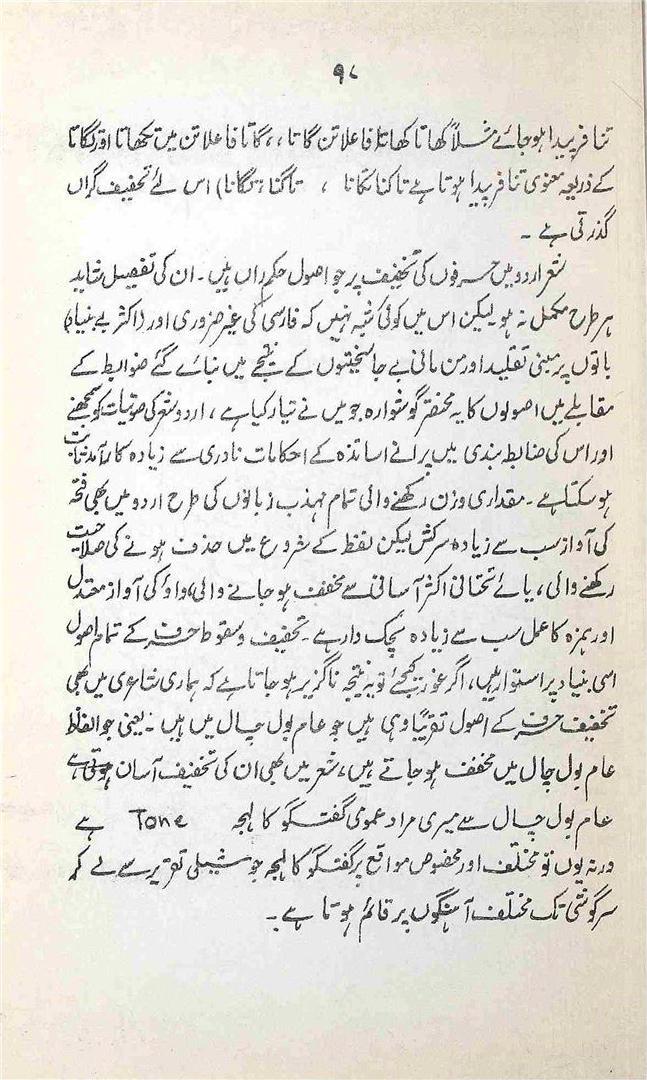 ۹۸
تنافر پیدا ہو جائے مثلاً کھاتا کھاتا فاعلاتن گاتا ،، گاتا فاعلاتن میں تکھاتا اور تگاتا
کے ذریعہ معنوی تنافر پیدا ہوتا ہے تاکتا تکاتا ، تاگتا، تگاتا) اس لئے تخفیف گراں
گذرتی ہے ۔
شعر اردو میں حرفوں کی تخفیف پر جو اصول حکمراں ہیں۔ ان کی تفصیل شاید
ہر طرح مکمل نہ ہو لیکن اس میں کوئی شبہ نہیں کہ فارسی کی غیر ضروری اور (اکثر بے بنیاد)
باتوں پر مبنی تقلید اور من مانی بے جا سختیوں کے نتیجے میں بنائے گئے ضوابط کے
مقابلے میں اصولوں کا یہ مختصر گوشوارہ جو میں نے تیار کیا ہے ، اردو شعر کی صوتیات کو سمجھنے
اور اس کی ضابطہ بندی میں پرانے اساتذہ کے احکامات نادری سے زیادہ کارآمد ثابت
ہو سکتا ہے ۔ مقداری وزن رکھنے والی تمام مہذب زبانوں کی طرح اردو میں بھی فتحہ
کی آواز سب سے زیادہ سرکش لیکن لفظ کے شروع میں حذف ہونے کی صلاحیت
رکھنے والی ، یائے تحتانی اکثر آسانی سے مخفف ہو جانے والی، واؤ کی آواز معتدل
اور ہمزہ کا عمل سب سے زیادہ لچک دار ہے۔ تخفیف و سقوط حرف کے تمام اصول
اسی بنیاد پر استوار ہیں، اگر غور کیجئے تو یہ نتیجہ ناگزیر ہو جاتا ہے کہ ہماری شاعری میں بھی
تخفیف حرف کے اصول تقریباً وہی ہیں جو عام بول چال میں ہیں ۔ یعنی جو الفاظ
عام بول چال میں مخفف ہو جاتے ہیں، شعر میں بھی ان کی تخفیف آسان ہوتی ہے
عام بول چال سے میری مراد عمومی گفتگو کا لہجہ Tone ہے
ورنہ یوں تو مختلف اور مخصوص مواقع پر گفتگو کا لہجہ جو سٹیلی تقریر سے لے کر
سرگوشی تک مختلف آہنگوں پر قائم ہوتا ہے ۔